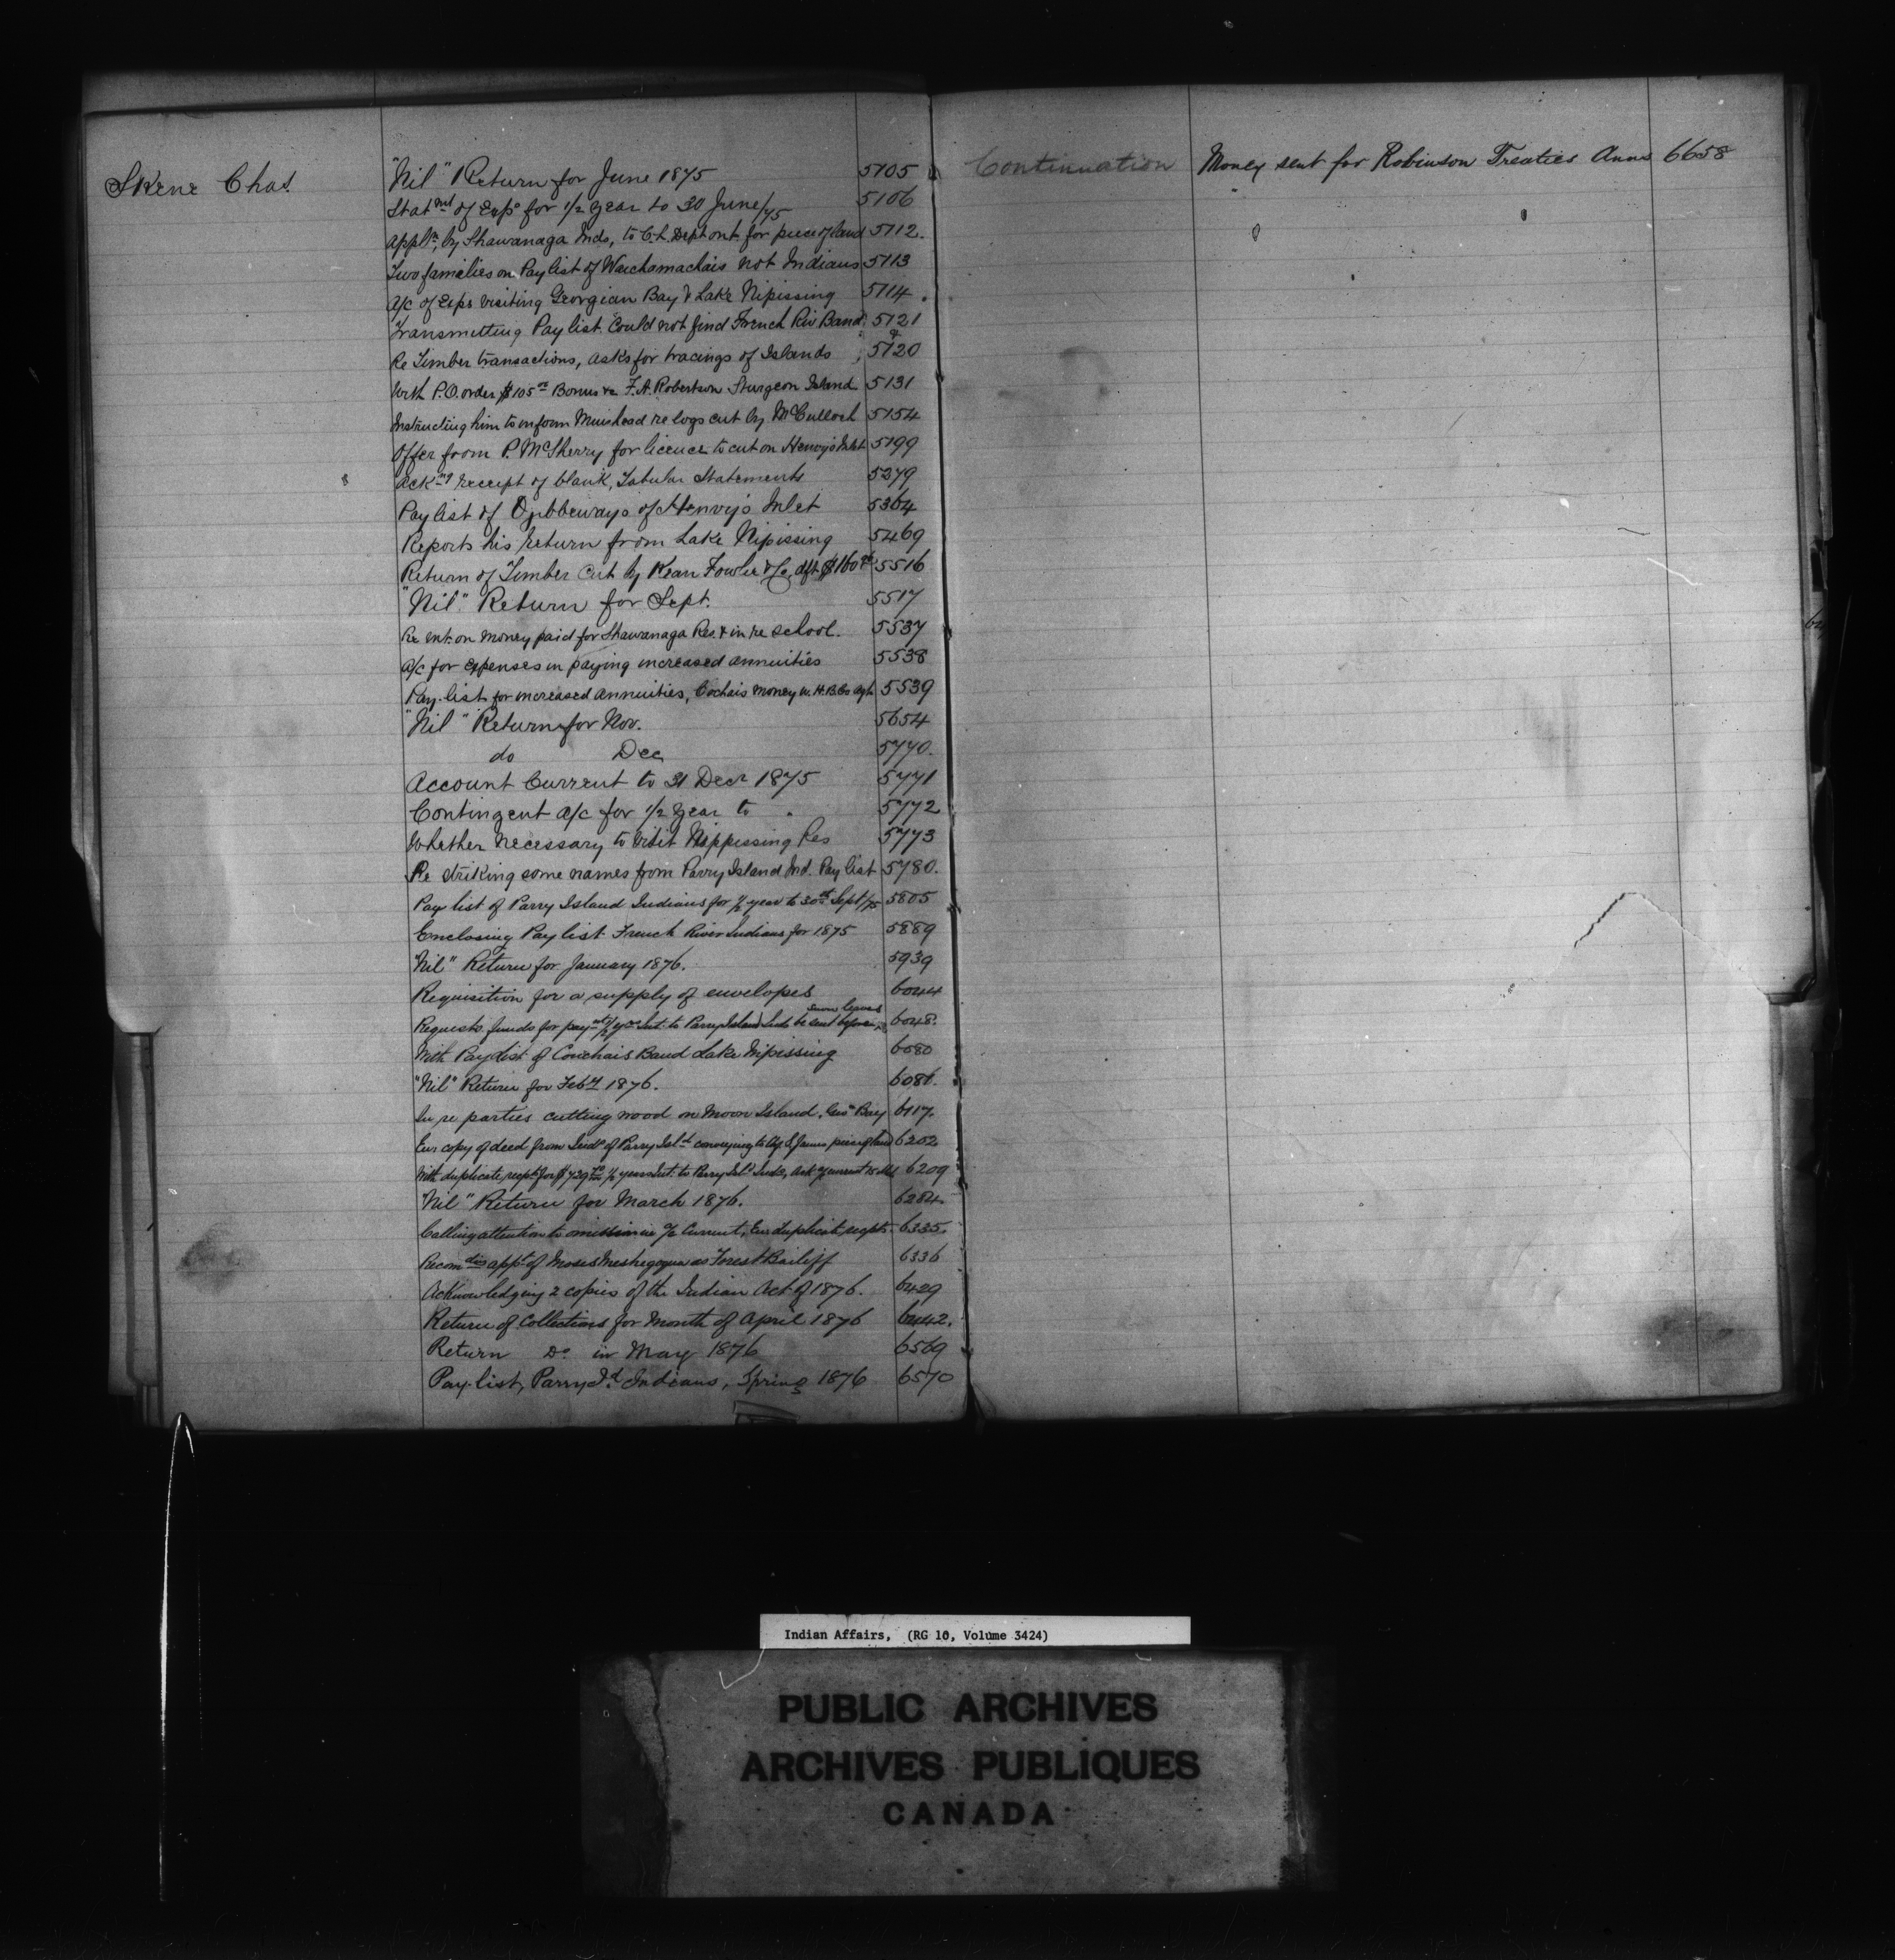 Skene Chas.
"Nil" Return for June 1875 5105
Statmt of Exps for 1/2 year to 30 June/75 5106
Appln, by Shawanaga Inds, to C.L. Dept Ont. for piece of land 5112.
Two families on Paylist of Waichamachais not Indians 5113
A/c of Exps visiting Georgian Bay & Lake Nipissing 5114.
Transmitting Pay list. Could not find French Riv Band 5121
Re Timber transactions, asks for tracings of Islands 5120
With P.O. order $105 Bonus &c F.A. Robertson Sturgeon Island 5131
Instructing him to inform Muirhead re logs cut by McCulloch 5154
Offer from P. McSherry for licence to cut on Henvy's Inlet 5199
Ackng receipt of blank, Tabular Statements 5279
Pay list of Ojibbeways of Henvy's Inlet 5364
Reports his return from Lake Nipissing 5469
Return of Timber Cut by Kean Fowler & Co, dft $160 5516
"Nil" Return for Sept. 5517
Re Int. on money paid for Shawanaga Res. & in re school. 5537
A/c for expenses in paying increased annuities 5538
Pay-list for increased annuities, Cochais money w. H.B.Co Agt 5539
"Nil" Return for Nov. 5654
do Dec 5770.
Account Current to 31 Decr 1875 5771
Contingent a/c for 1/2 year to " 5772
Whether necessary to visit Nippissing Res 5773
Re striking some names from Parry Island Ind. Pay list 5780.
Pay list of Parry Island Indians for 1/2 year to 30th Sept/75 5805
Enclosing Pay list French River Indians for 1875 5889
"Nil" Return for January 1876. 5939
Requisition for a supply of envelopes 6044
Requests funds for paymt 1/2 yrs Int. to Parry Island Inds be sent before 6048.
With Paylist of Couchais Band Lake Nipissing 6080
"Nil" Return for Feby 1876. 6086.
In re parties cutting wood on Moon Island. Geon Bay 6117.
Enc copy of deed from Inds of Parry Isld conveying to piece of land 6202
With duplicate recpts for $729 1/2 years Int. to Parry Isld Inds, 6209
"Nil" Return for March 1876. 6284.
Calling attention to omission in a/c Current, Enc duplicate recpts. 6335.
Recomdg appt of Moses Meshegogua as Forest Bailiff 6336
Acknowledging 2 copies of the Indian Act of 1876. 6429
Return of Collections for Month of April 1876 6442.
Return Do in May 1876 6569
Pay-list, Parry Id Indians, Spring 1876 6570
Continuation Money sent for Robinson Treaties Anns 6658
Indian Affairs, (RG 10, Volume 3424)
PUBLIC ARCHIVES
ARCHIVES PUBLIQUES
CANADA